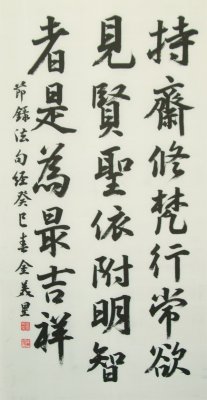 持齋修梵行常欲
見賢聖依附明智
者是為最吉祥
節錄法句經癸巳春金義里